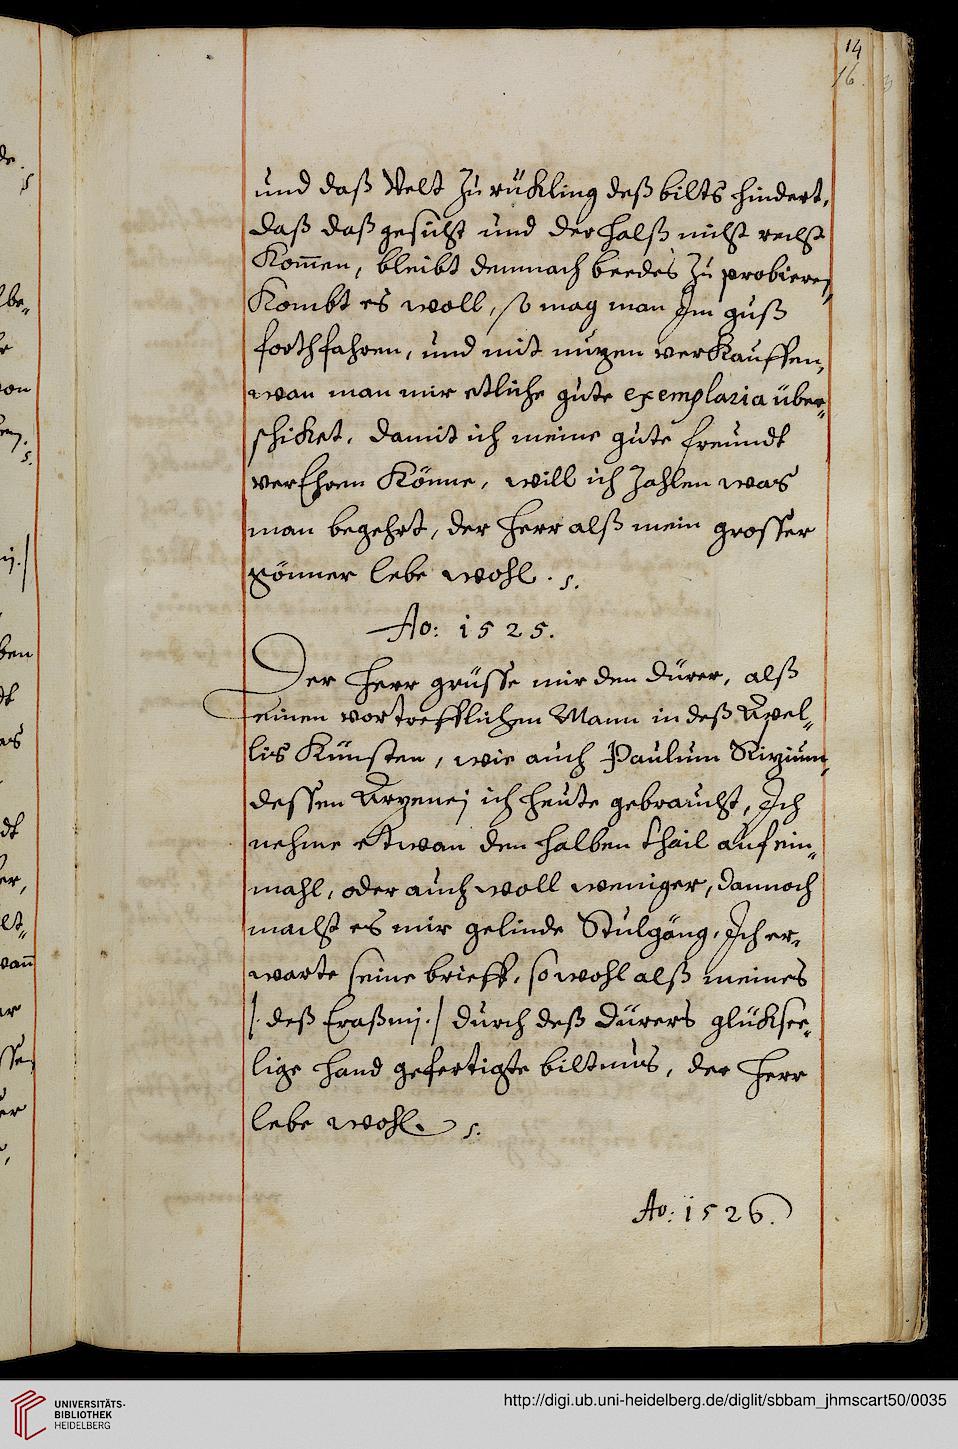 14
16.
und daß Velt zu rükling deß bilts hindert,
daß daß gesicht und der halß nicht recht
Kom̄en, bleibt demnach beedes zu probieren,
Kombt es woll, so mag man Im guß
forthfahren, und mit nuzen verKauffen,
wan man mir etliche gute exemplaria über„
schicket, damit ich meine gute freundt
verEhren Könne, will ich zahlen was
man begehrt, der Herr alß mein grosser
gönner lebe wohl. s.
Ao: 1525.
Der Herr grüsse mir den dürer, alß
einen vortrefflichen Mann in deß Apel„
lis Künsten, wie auch Paulum Rizium,
dessen Arzenej ich heute gebraucht, Ich
nehme etwan den halben thail auf ein„
mahl, oder auch woll weniger, dannoch
macht es mir gelinde Stulgäng, Ich er„
warte seine brieff, so wohl alß meines
/. deß Eraßmj./ durch deß dürers glüksee„
lige Hand gefertigte biltnus, der Herr
lebe wohl. s.
Ao: 1526.
UNIVERSITÄTS-
BIBLIOTHEK
HEIDELBERG
http://digi.ub.uni-heidelberg.de/diglit/sbbam_jhmscart50/0035